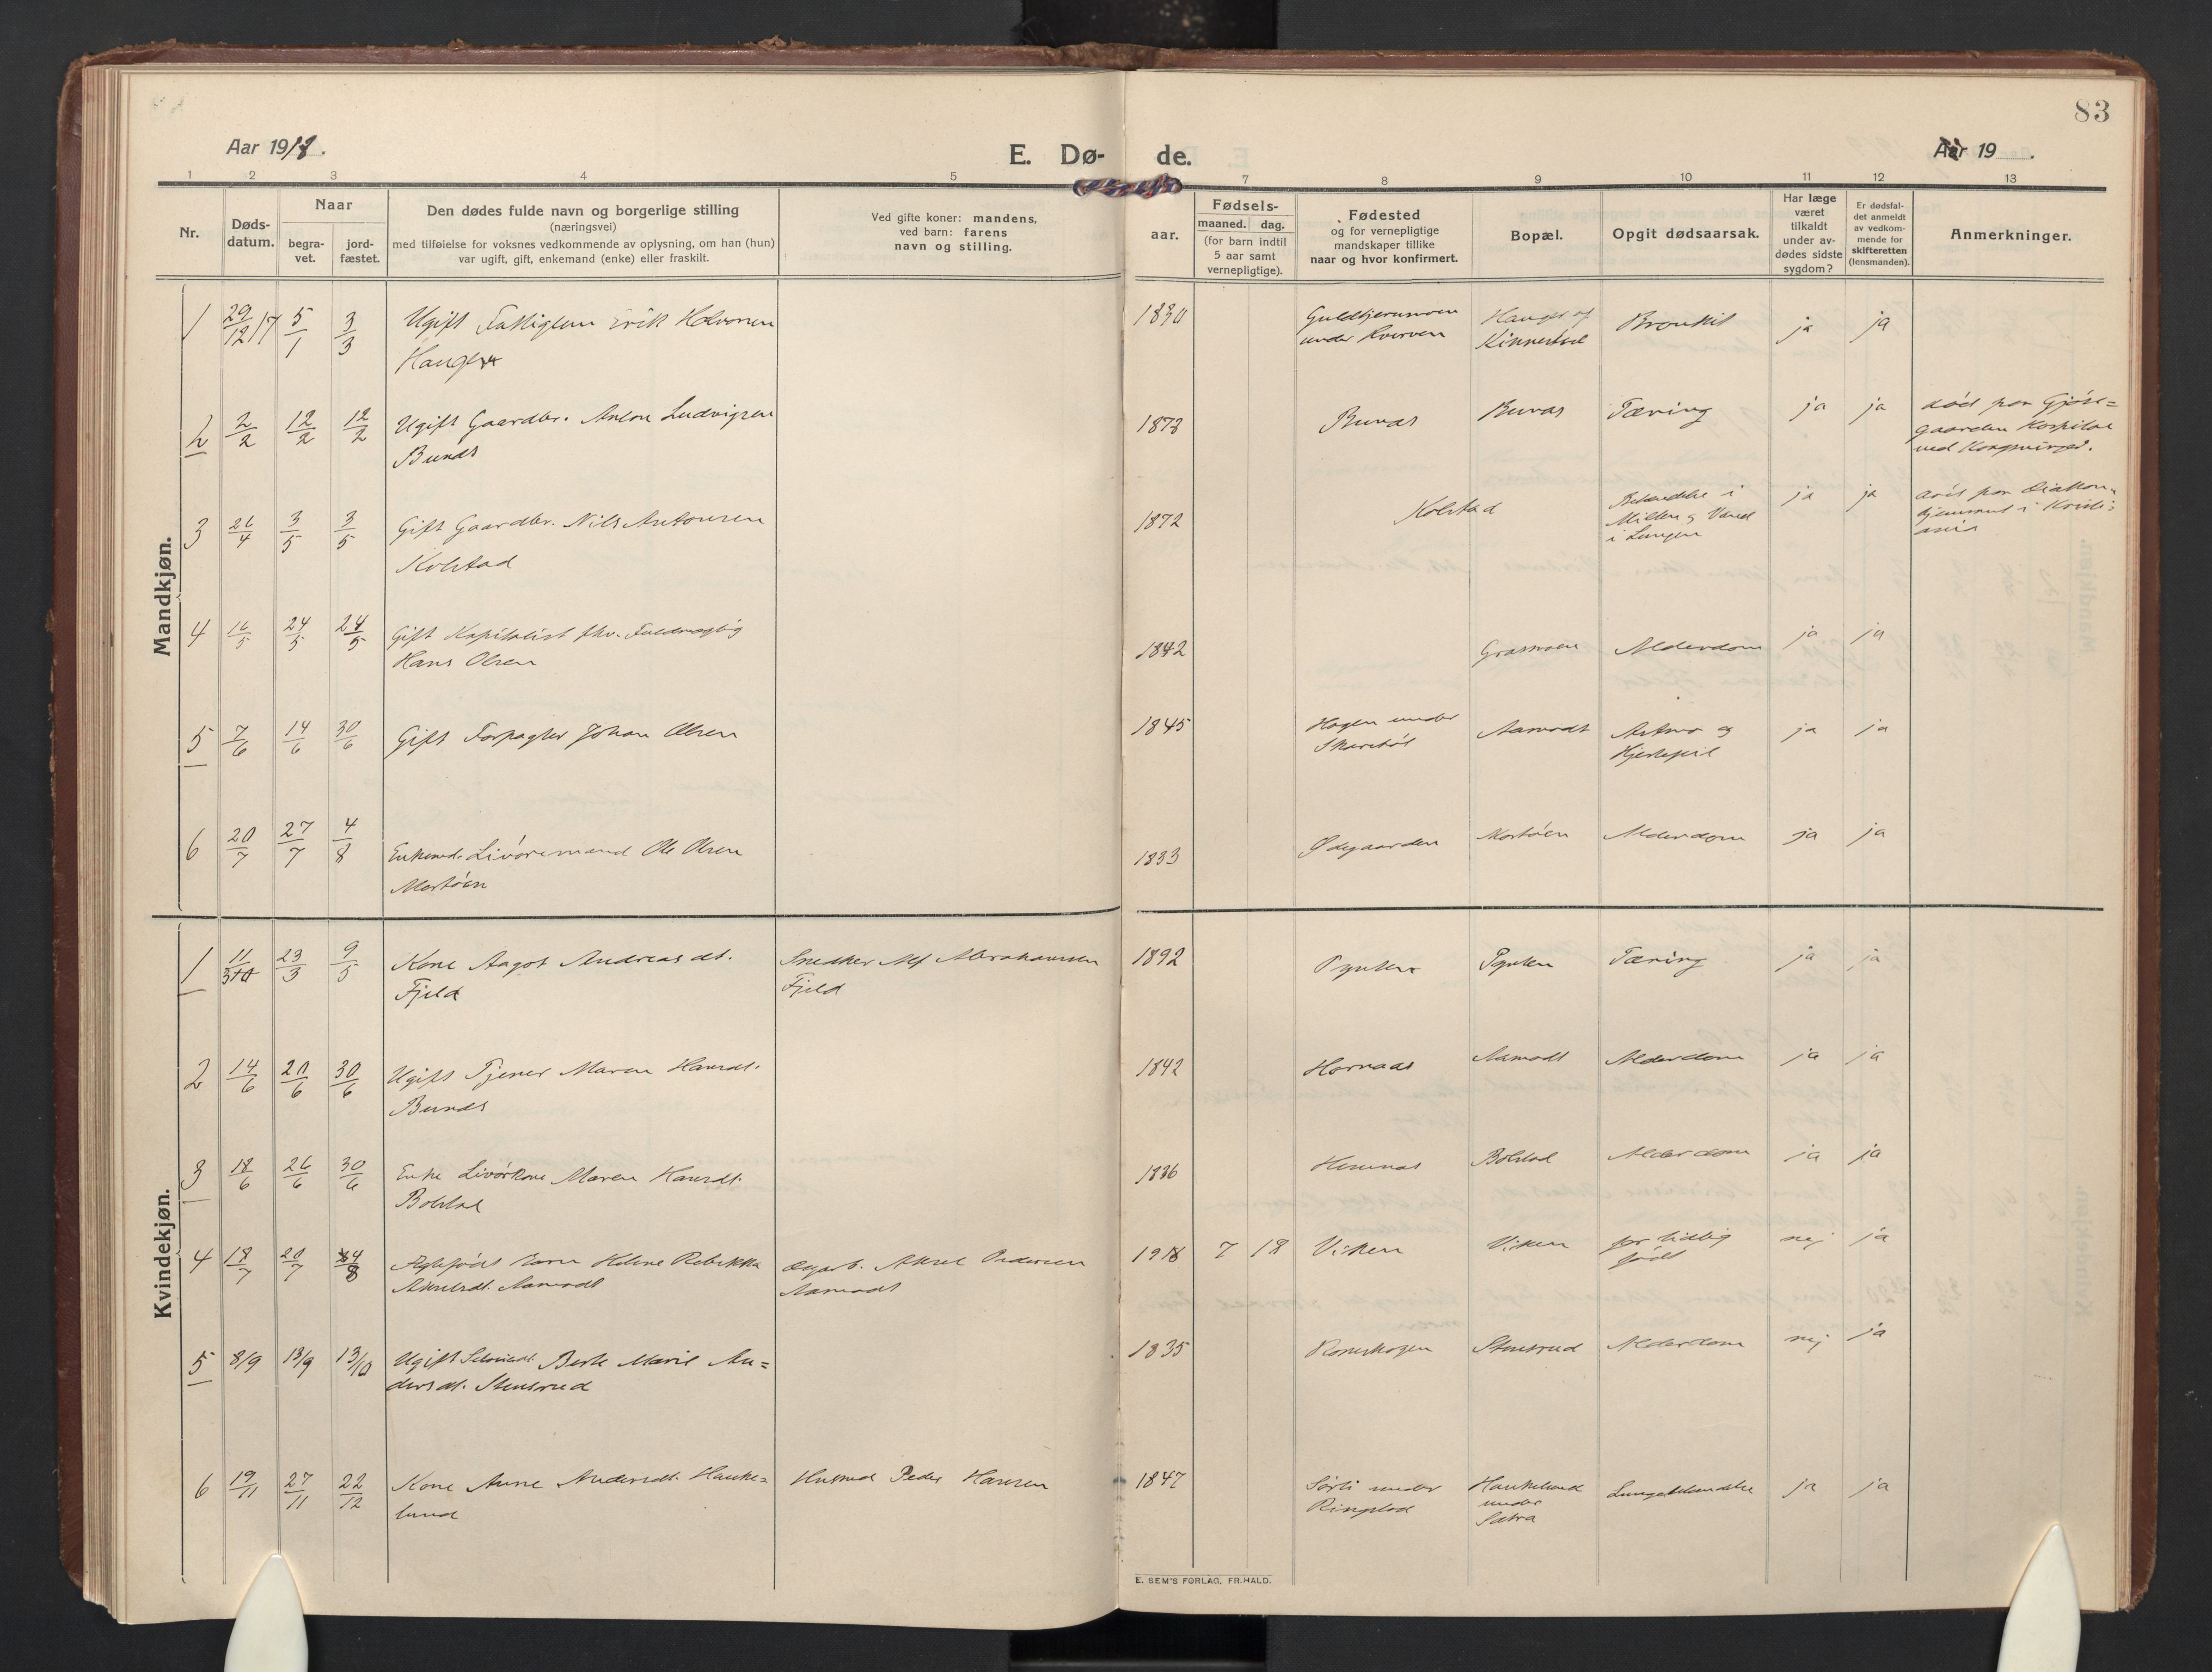 83
Aar 1918.
E. Dø- de.
Aar 19 .
1 2 3 4 5 7 8 9 10 11 12 13
Nr.
Døds-
datum.
Naar
begra-
vet.
jord-
fæstet.
Den dødes fulde navn og borgerlige stilling
(næringsvei)
med tilføielse for voksnes vedkommende av oplysning, om han (hun)
var ugift, gift, enkemand (enke) eller fraskilt.
Ved gifte koner: mandens,
ved barn: farens
navn og stilling.
aar.
Fødsels-
maaned. dag.
(for barn indtil
5 aar samt
vernepligtige).
Fødested
og for vernepligtige
mandskaper tillike
naar og hvor konfirmert.
Bopæl.
Opgit dødsaarsak.
Har læge
været
tilkaldt
under av-
dødes sidste
sygdom?
Er dødsfal-
det anmeldt
av vedkom-
mende for
skifteretten
(lensmanden).
Anmerkninger.
Mandkjøn.
1 29/12 17 5/1 3/3 Ugift Fattiglem Erik
under ja ja
2 2/2 12/2 12/2 Ugift Gaardbr. Anton Ludvigsen
Bunæs
1873 Bunæs Bunæs Tæring ja ja død paa
gaarden Hospital
ved Kongsvinger.
3 26/4 3/5 3/5 Gift Gaardbr. Nils Antonsen
Kolstad
1872 Kolstad i
Milten og Vand
i Lungen
ja ja død paa Diakon-
hjemmet i Kristi-
ania
4 16/5 24/5 24/5 Gift Kapitalist fhv. Fuldmægtig
Hans Olsen
1842 Grasmoen Alderdom ja ja
5 7/6 14/6 30/6 Gift Forpagter Johan Olsen
1845 Hagen under
Aamodt Astma og
Hjertefeil
ja ja
6 20/7 27/7 4/8 Enkemd. Livøremand Ole Olsen
Mortøen
1833 Ødegaarden Mortøen Alderdom ja ja
Kvindekjøn.
1 11/3 23/3 9/5 Kone Aagot Andreasdt.
Fjeld
Snedker Alf Abrahamsen
Fjeld
1892 Pynten Pynten Tæring ja ja
2 14/6 20/6 30/6 Ugift Tjener Maren Hansdt.
Bunæs
1842 Hornaas Aamodt Alderdom ja ja
3 18/6 26/6 30/6 Enke Livørkone Maren Hansdt.
Bolstad
1836 Bolstad Alderdom ja ja
4 18/7 20/7 4/8 Ægtefødt Barn Helene Rebekka
Akselsdt. Aamodt
Aksel Pedersen
Aamodt
1918 7 18 Viken Viken for tidlig
født
nej ja
5 8/9 13/9 13/10 Ugift Berte Marie An=
dersdt. Stensrud
1835 Stensrud Alderdom nej ja
6 19/11 27/11 22/12 Kone Anne Andersdt. Hauke=
lund
Husmd Peder Hansen
1847 Sørli under
Ringstad
Haukelund
under
Sætra
Lungebetændelse ja ja
E. SEM'S FORLAG, FR.HALD.